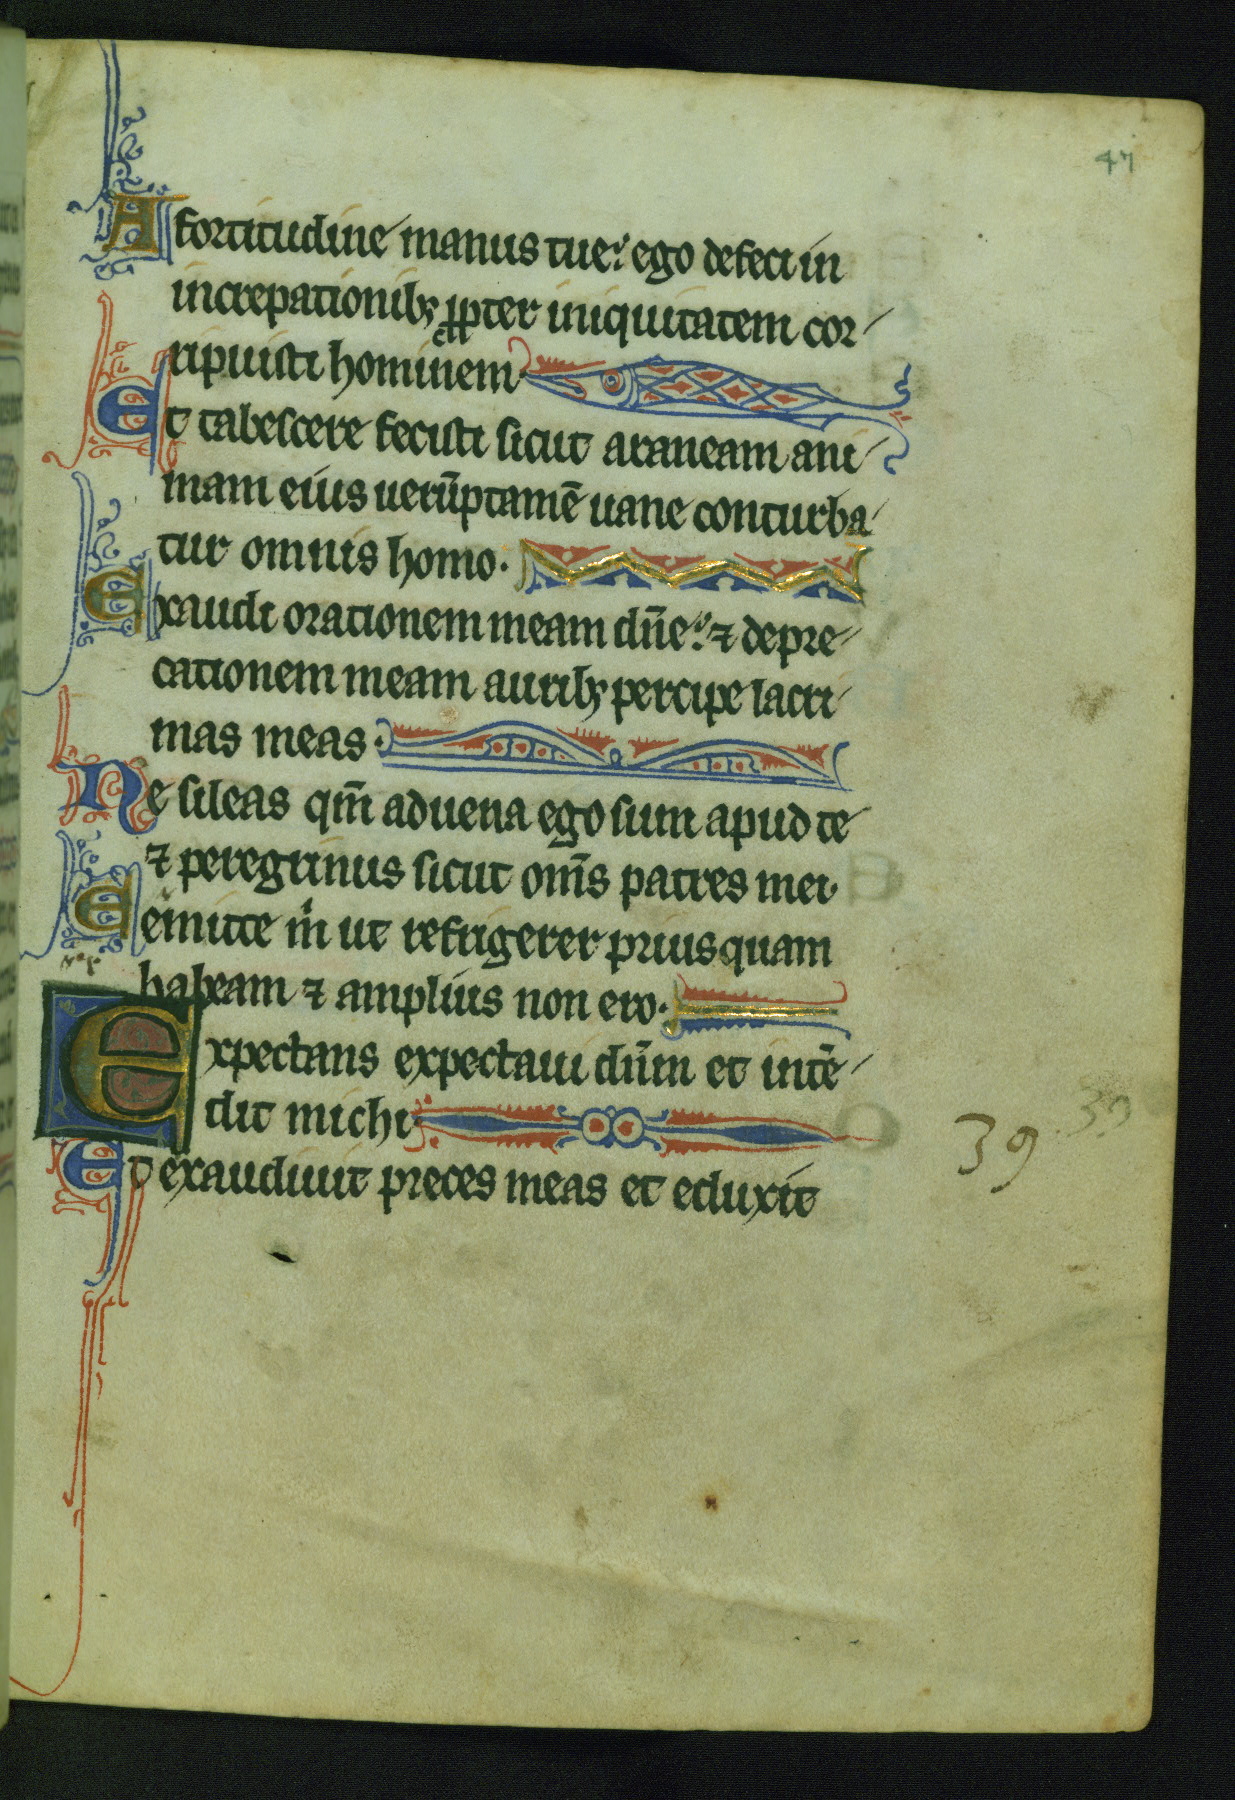 47
A fortitudine manus tue ego defeci in
increpationibꝫ ꝓpter iniquitatem cor
ripuisti hominem
Et tabescere fecisti sicut araneam ani
mam eius uerūptamē uane conturba
tur omnis homo.
Exaudi orationem meam dn̄e ⁊ depre
cationem meam auribꝫ percipe lacri
mas meas.
Ne sileas qm̄ aduena ego sum apud te
⁊ peregrinus sicut om̄s patres mei.
Remitte m̄ ut refrigerer priusquam
habeam ⁊ amplius non ero.
Expectans expectaui dūm et intē
dit michi
39 39
Et exaudiuit preces meas et eduxit